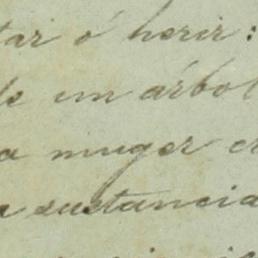 tar ó herir:
de un árbol
a muger es
a sustancia